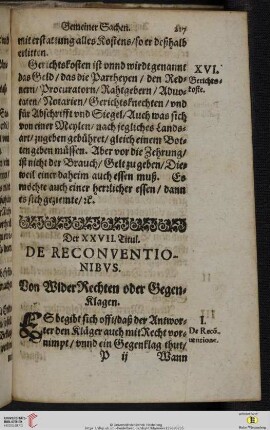 Gemeiner Sachen. 217
mit erstattung alles Kostens/so er deßhalb
erlitten.
Gerichtskosten ist vnnd wirdt genannt
das Geld/ das die Partheyen / den Red-
nern/ Procuratorn/ Rahtgebern/ Aduo-
caten/ Notarien/ Gerichtsknechten/ vnd
für Abschrifft vnd Siegel/ Auch was sich
von einer Meylen/ nach jegliches Lands-
art/ zugeben gebührt/ gleich einem Bot-
ten geben müssen. Aber vor die Zehrung/
ist nicht der Brauch/ Gelt zugeben/ Die-
weil einer daheim auch essen muß. Es
möchte auch einer herrlicher essen/ dann
es sich geziemte/ ꝛc.
XVI.
Gerichts-
koste.
Der XXVII. Titul.
DE RECONVENTIO-
NIBVS.
Von WiderRechten oder Gegen-
Klagen.
ES begibt sich offt/daß der Antwor-
ter den Kläger auch mit Recht vor-
nimpt/ vnnd ein Gegenklag thut/
P ij Wann
I.
De Recō-